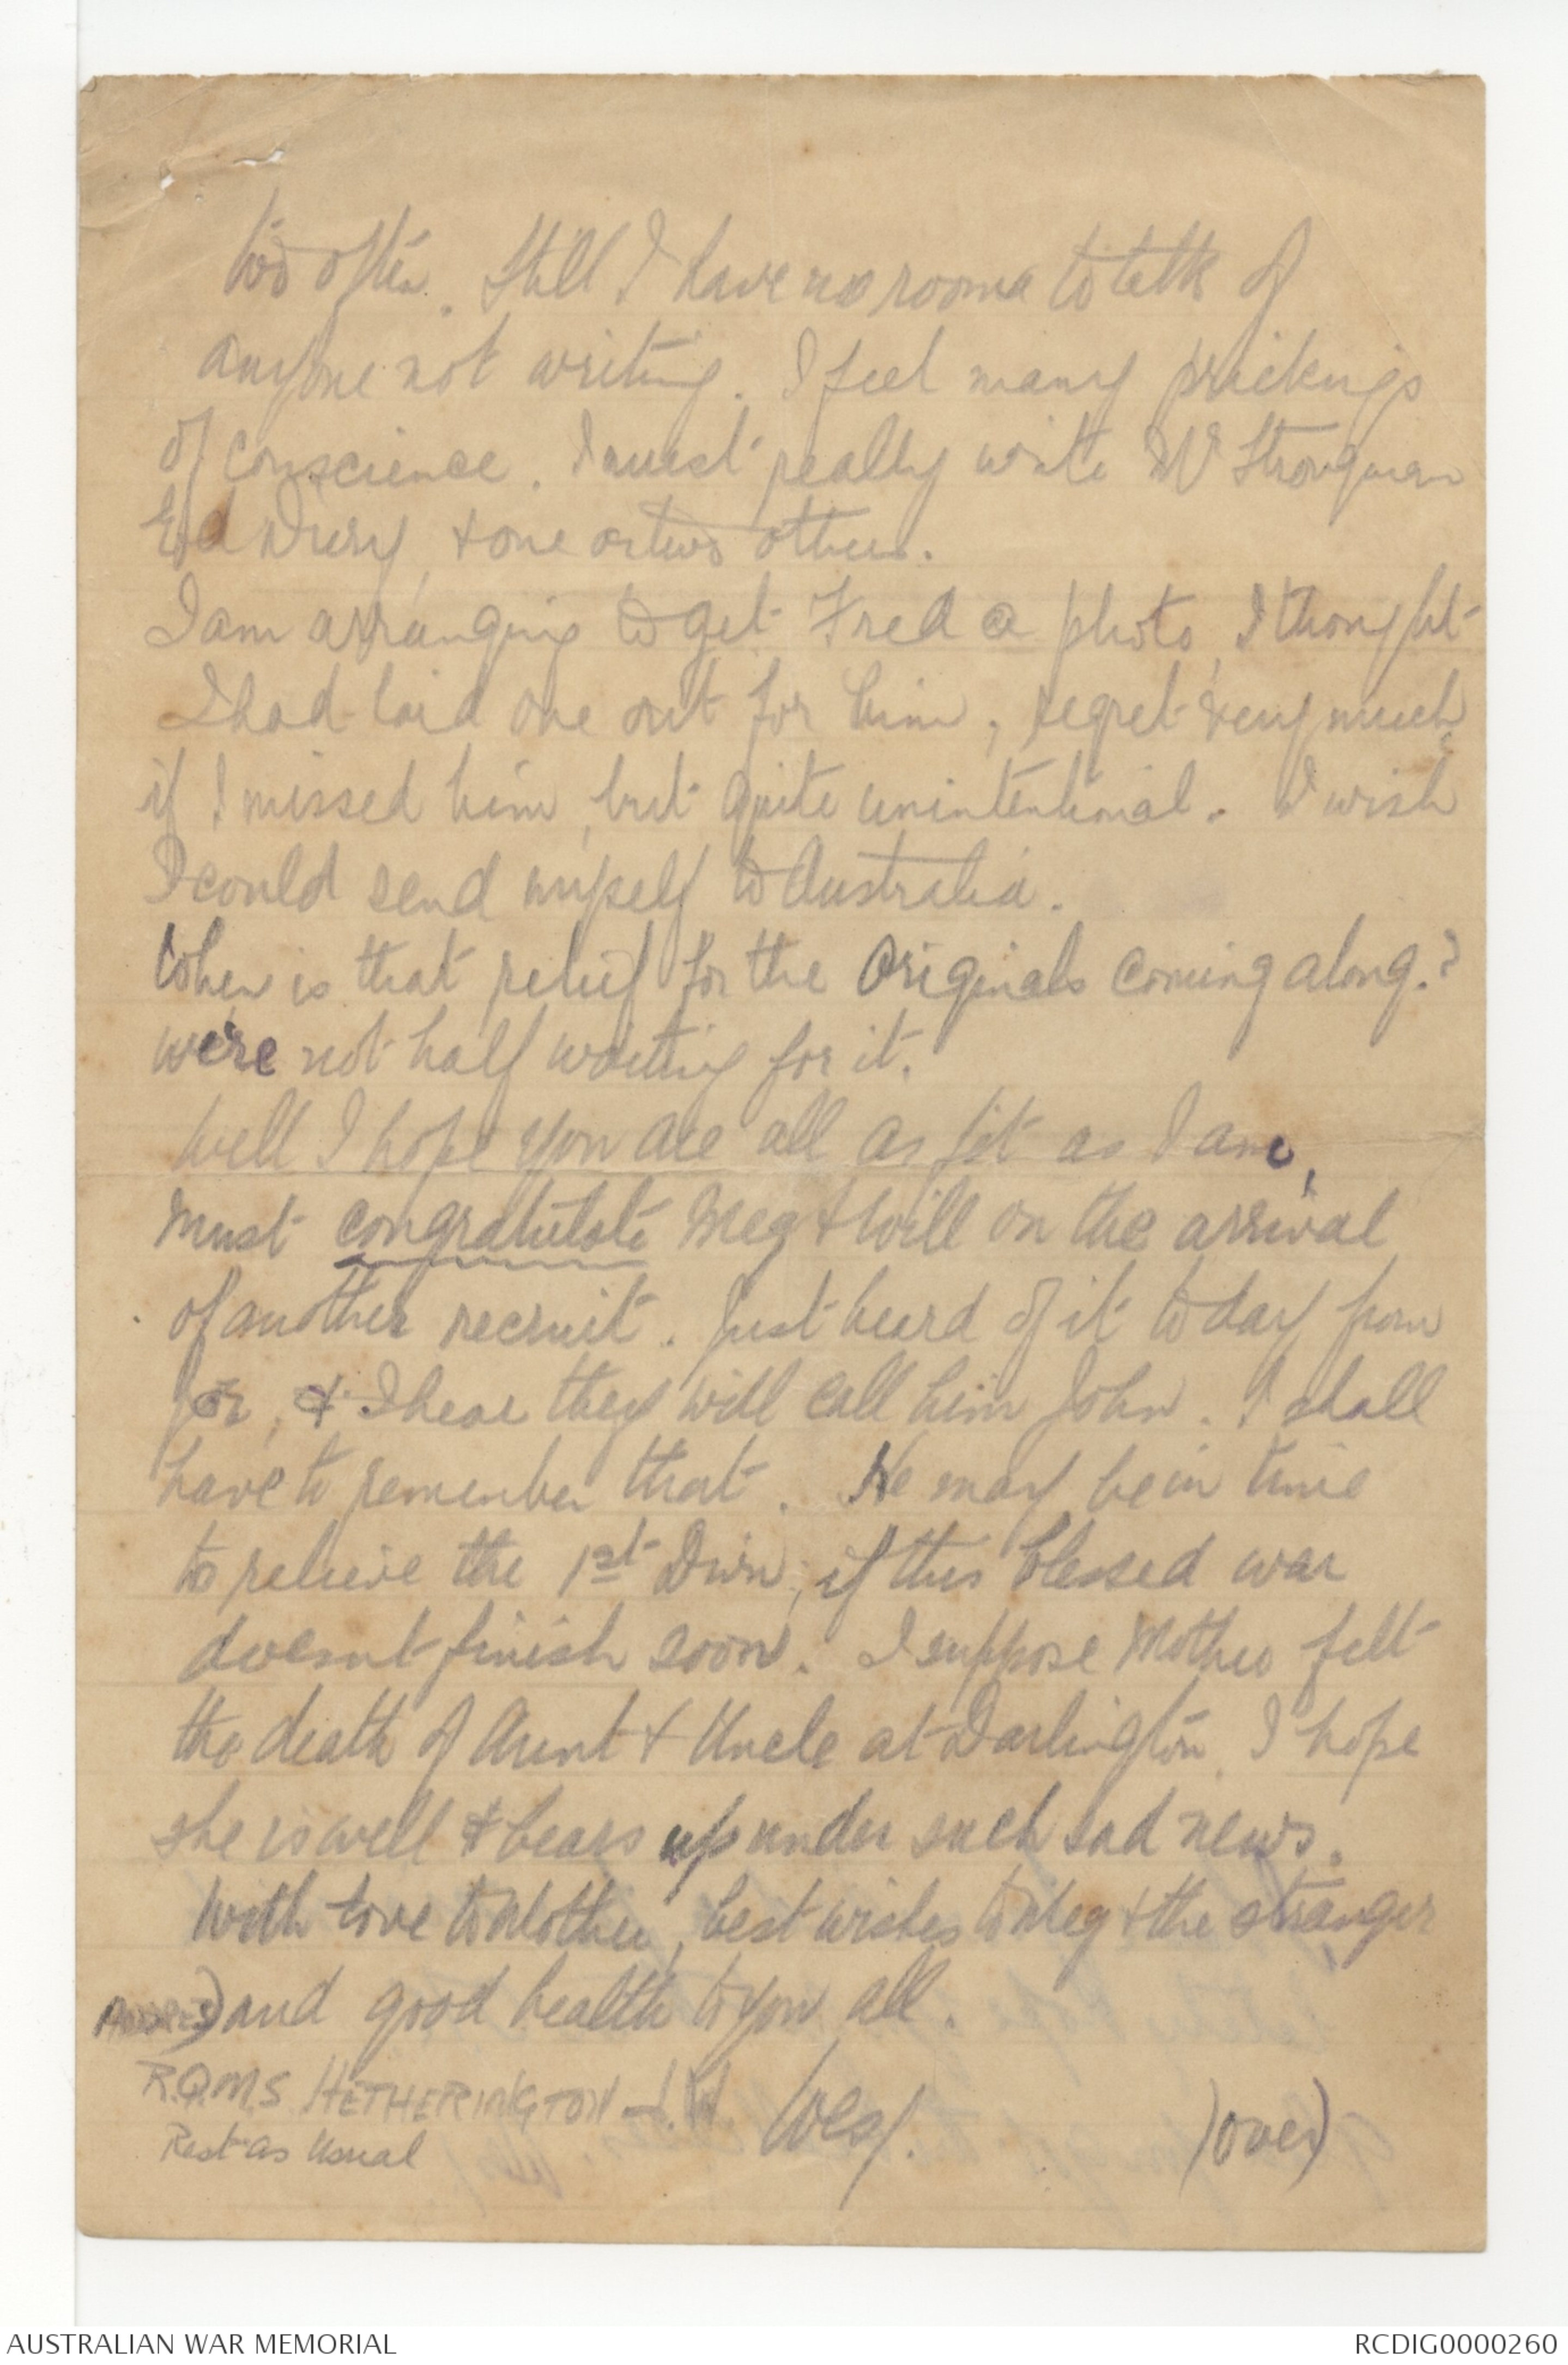 too often. Still I have no room to talk of
anyone not writing. I feel many prickings
of conscience. I must really write W Strongman
Ed Drury, & one or two others.
I am arranging to get Fred a photo, I thought
I had laid one out for him, regret very much
if I missed him, but quite unintentional. I wish
I could send myself to Australia.
When is that relief for the Originals coming along.?
we're not half waiting for it.
Well I hope you are all as fit as I am,
must congratulate Meg & Will on the arrival
of another recruit. Just heard of it today from
& I hear they will call him John. I shall
have to remember that. He may be in time
to relieve the 1st Divn, if this blessed war
doesnt finish soon. I suppose Mother felt
the death of Aunt & Uncle at Darlington, I hope
she is well & bears up under such sad news.
With love to Mother, best wishes to Meg & the stranger
Address) and good health to you all.
R.Q.M.S HETHERINGTON J.W. Wesy.
Rest as Usual
(over)
AUSTRALIAN WAR MEMORIAL
RCDIG0000260